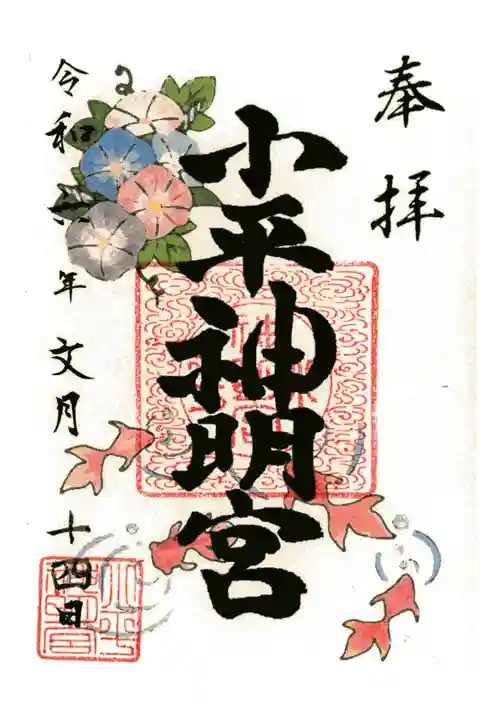 奉拝
小平神明宮
令和六年文月十四日